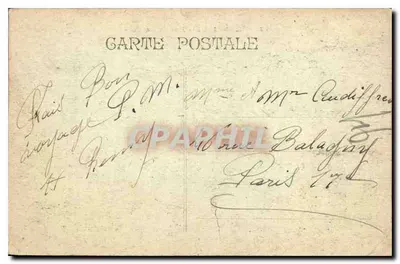 CARTE POSTALE
Fais Bon
voyage P. M.
H Henry
Mme & Mr Audiffred
rue Balagny
Paris 17e
CPAPHIL